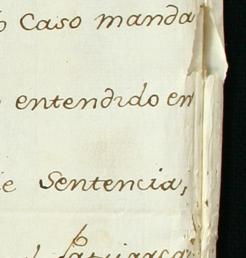 Caso manda
entendido en
Sentencia,